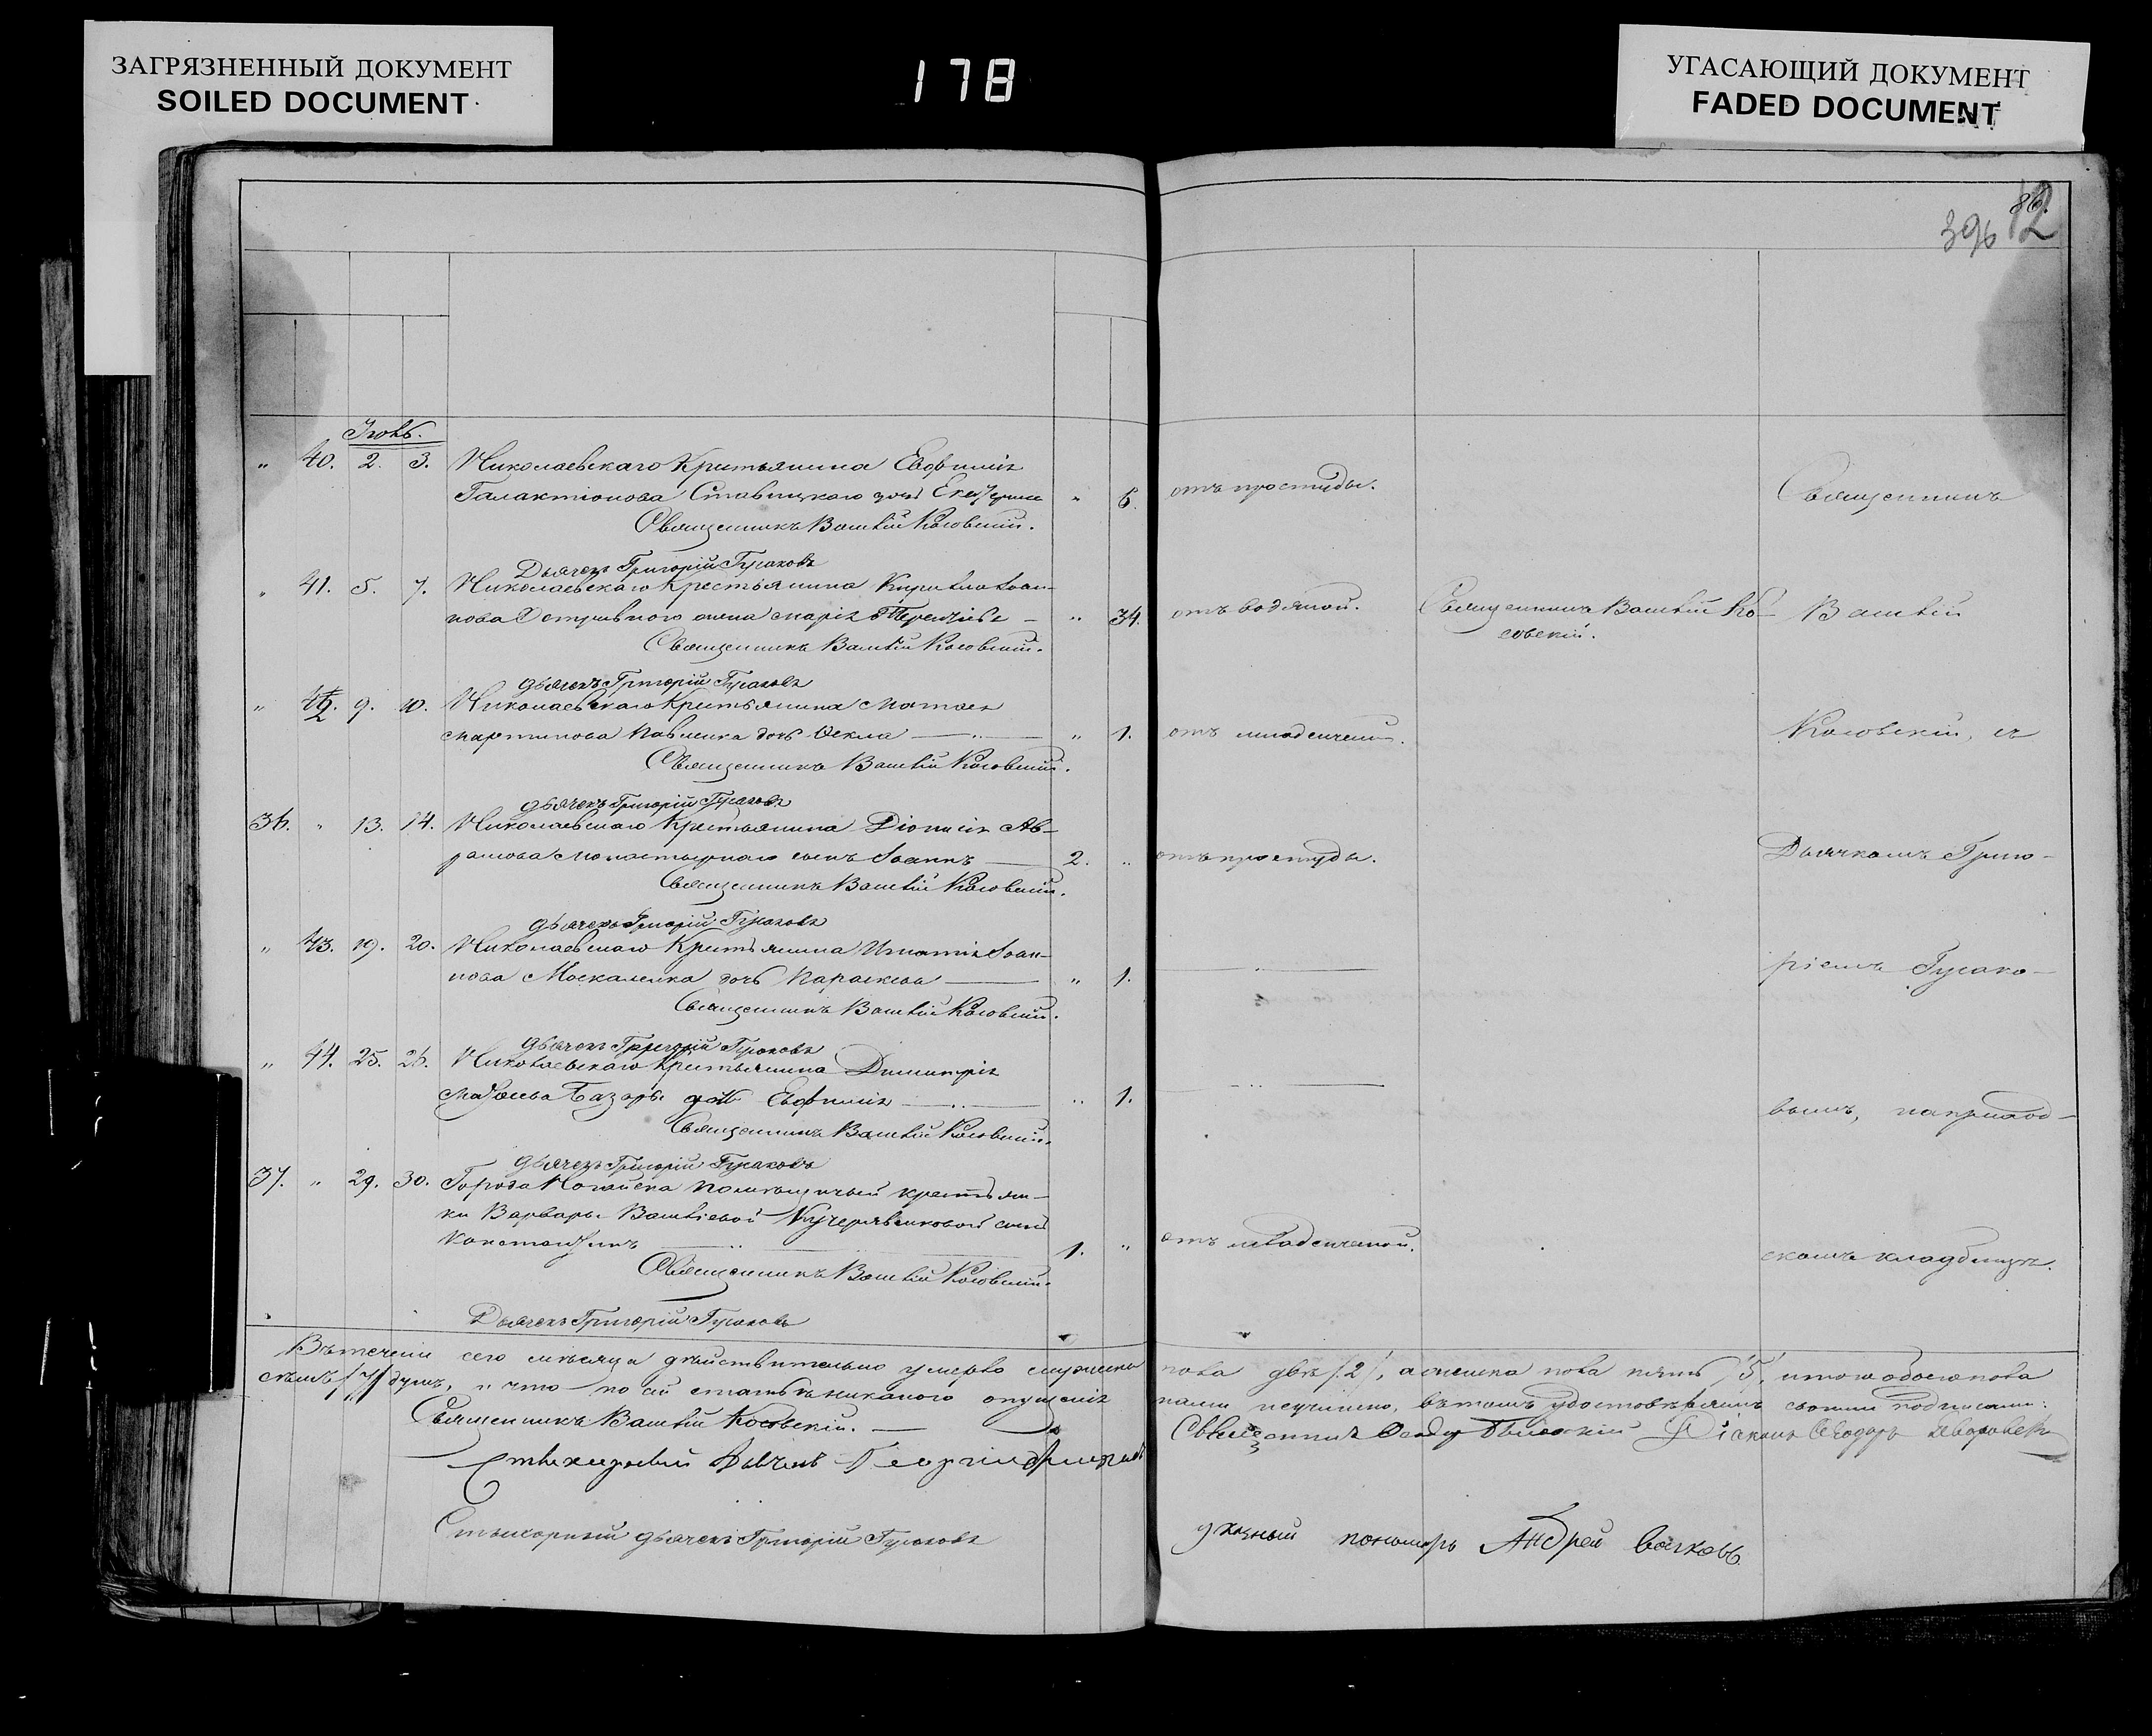 ЗАГРЯЗНЕННЫЙ ДОКУМЕНТ
SOILED DOCUMENT
178
УГАСАЮЩИЙ ДОКУМЕНТ
FADED DOCUMENT
86.
396 12
Іюнь.
" 40. 2. 3. Николаевскаго Крестьянина Евфимія
Галактіонова Ставицкаго дочь Екатерина " 6. отъ простуды. Священникъ
Священникъ Василій Косовскій.
Дьячекъ Григорій Гусаковъ
" 41. 5. 7. Николаевскаго Крестьянина Кирилла Іоан-
нова жена Марія " 34. отъ водяной. Священникъ Василій Ко- Василій
совскій.
Священникъ Василій Косовскій.
дьячекъ Григорій Гусаковъ
" 42. 9. 10. Николаевскаго Крестьянина Матвея
Мартинова Павленка дочь Ѳекла " 1. отъ младенческ. Косовскій, съ
Священникъ Василій Косовскій.
дьячекъ Григорій Гусаковъ
36. " 13. 14. Николаевскаго Крестьянина Діонисія Ав-
рамова Монастырнаго сынъ Іоаннъ 2. " отъ простуды. Дьячкомъ Григо-
Священникъ Василій Косовскій.
дьячекъ Григорій Гусаковъ
" 43. 19. 20. Николаевскаго Крестьянина Игнатія Іоан-
нова Москаленка дочь Параскева " 1. " ріемъ Гусако-
Священникъ Василій Косовскій.
дьячекъ Григорій Гусаковъ
" 44. 25. 26. Николаевскаго Крестьянина Димитрія
Базары дочь Евфимія " 1. " вымъ, на приход-
Священникъ Василій Косовскій.
дьячекъ Григорій Гусаковъ
37. " 29. 30. Города Ногайска помѣщичьей крестьян-
ки Варвары Василіевой сынъ
Константинъ 1. " отъ младенческой. скомъ кладбищѣ.
Священникъ Василій Косовскій.
Дьячекъ Григорій Гусаковъ
Въ теченіи сего мѣсяца дѣйствительно умерло мужеска пола двѣ /2/, а женска пола пять /5/, итого обоего пола
семь /7/ душъ, и что по сей статьѣ никакого опущенія нами неучинено, въ томъ удостовѣряемъ своими подписами:
Священникъ Василій Косовскій. Священникъ Діаконъ Ѳеодоръ
Стихарный Дьячекъ Георгій
Стихарный дьячекъ Григорій Гусаковъ указный пономарь Андрей